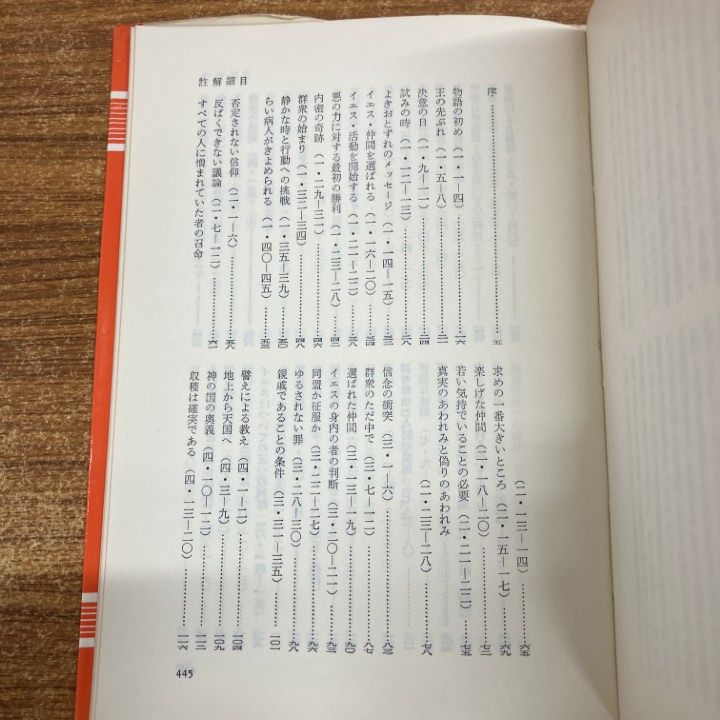 註解細目
序……五
物語の初め（一・一—四）……一六
王の先ぶれ（一・五—八）……二一
決意の日（一・九—一一）……二四
試みの時（一・一二—一三）……二八
よきおとずれのメッセージ（一・一四—一五）……三三
イエス・仲間を選ばれる（一・一六—二〇）……三五
イエス・活動を開始する（一・二一—二二）……三八
悪の力に対する最初の勝利（一・二三—二八）……四一
内密の奇跡（一・二九—三一）……四六
群衆の始まり（一・三二—三四）……四八
静かな時と行動への挑戦（一・三五—三九）……五〇
らい病人がきよめられる（一・四〇—四五）……五三
否定されない信仰（二・一—六）……五八
反ばくできない議論（二・七—一二）……六一
すべての人に憎まれていた者の召命
（二・一三—一四）……六五
求めの一番大きいところ（二・一五—一七）……六九
楽しげな仲間（二・一八—二〇）……七二
若い気持でいることの必要（二・二一—二二）……七五
真実のあわれみと偽りのあわれみ
（二・二三—二八）……七八
信念の衝突（三・一—六）……八三
群衆のただ中で（三・七—一二）……八七
選ばれた仲間（三・一三—一九）……九〇
イエスの身内の者の判断（三・二〇—二一）……九三
同盟か征服か（三・二二—二七）……九六
ゆるされない罪（三・二八—三〇）……九八
親戚であることの条件（三・三一—三五）……一〇一
譬えによる教え（四・一—二）……一〇四
地上から天国へ（四・三—九）……一〇九
神の国の奥義（四・一〇—一二）……一一二
収穫は確実である（四・一三—二〇）……一一六
445